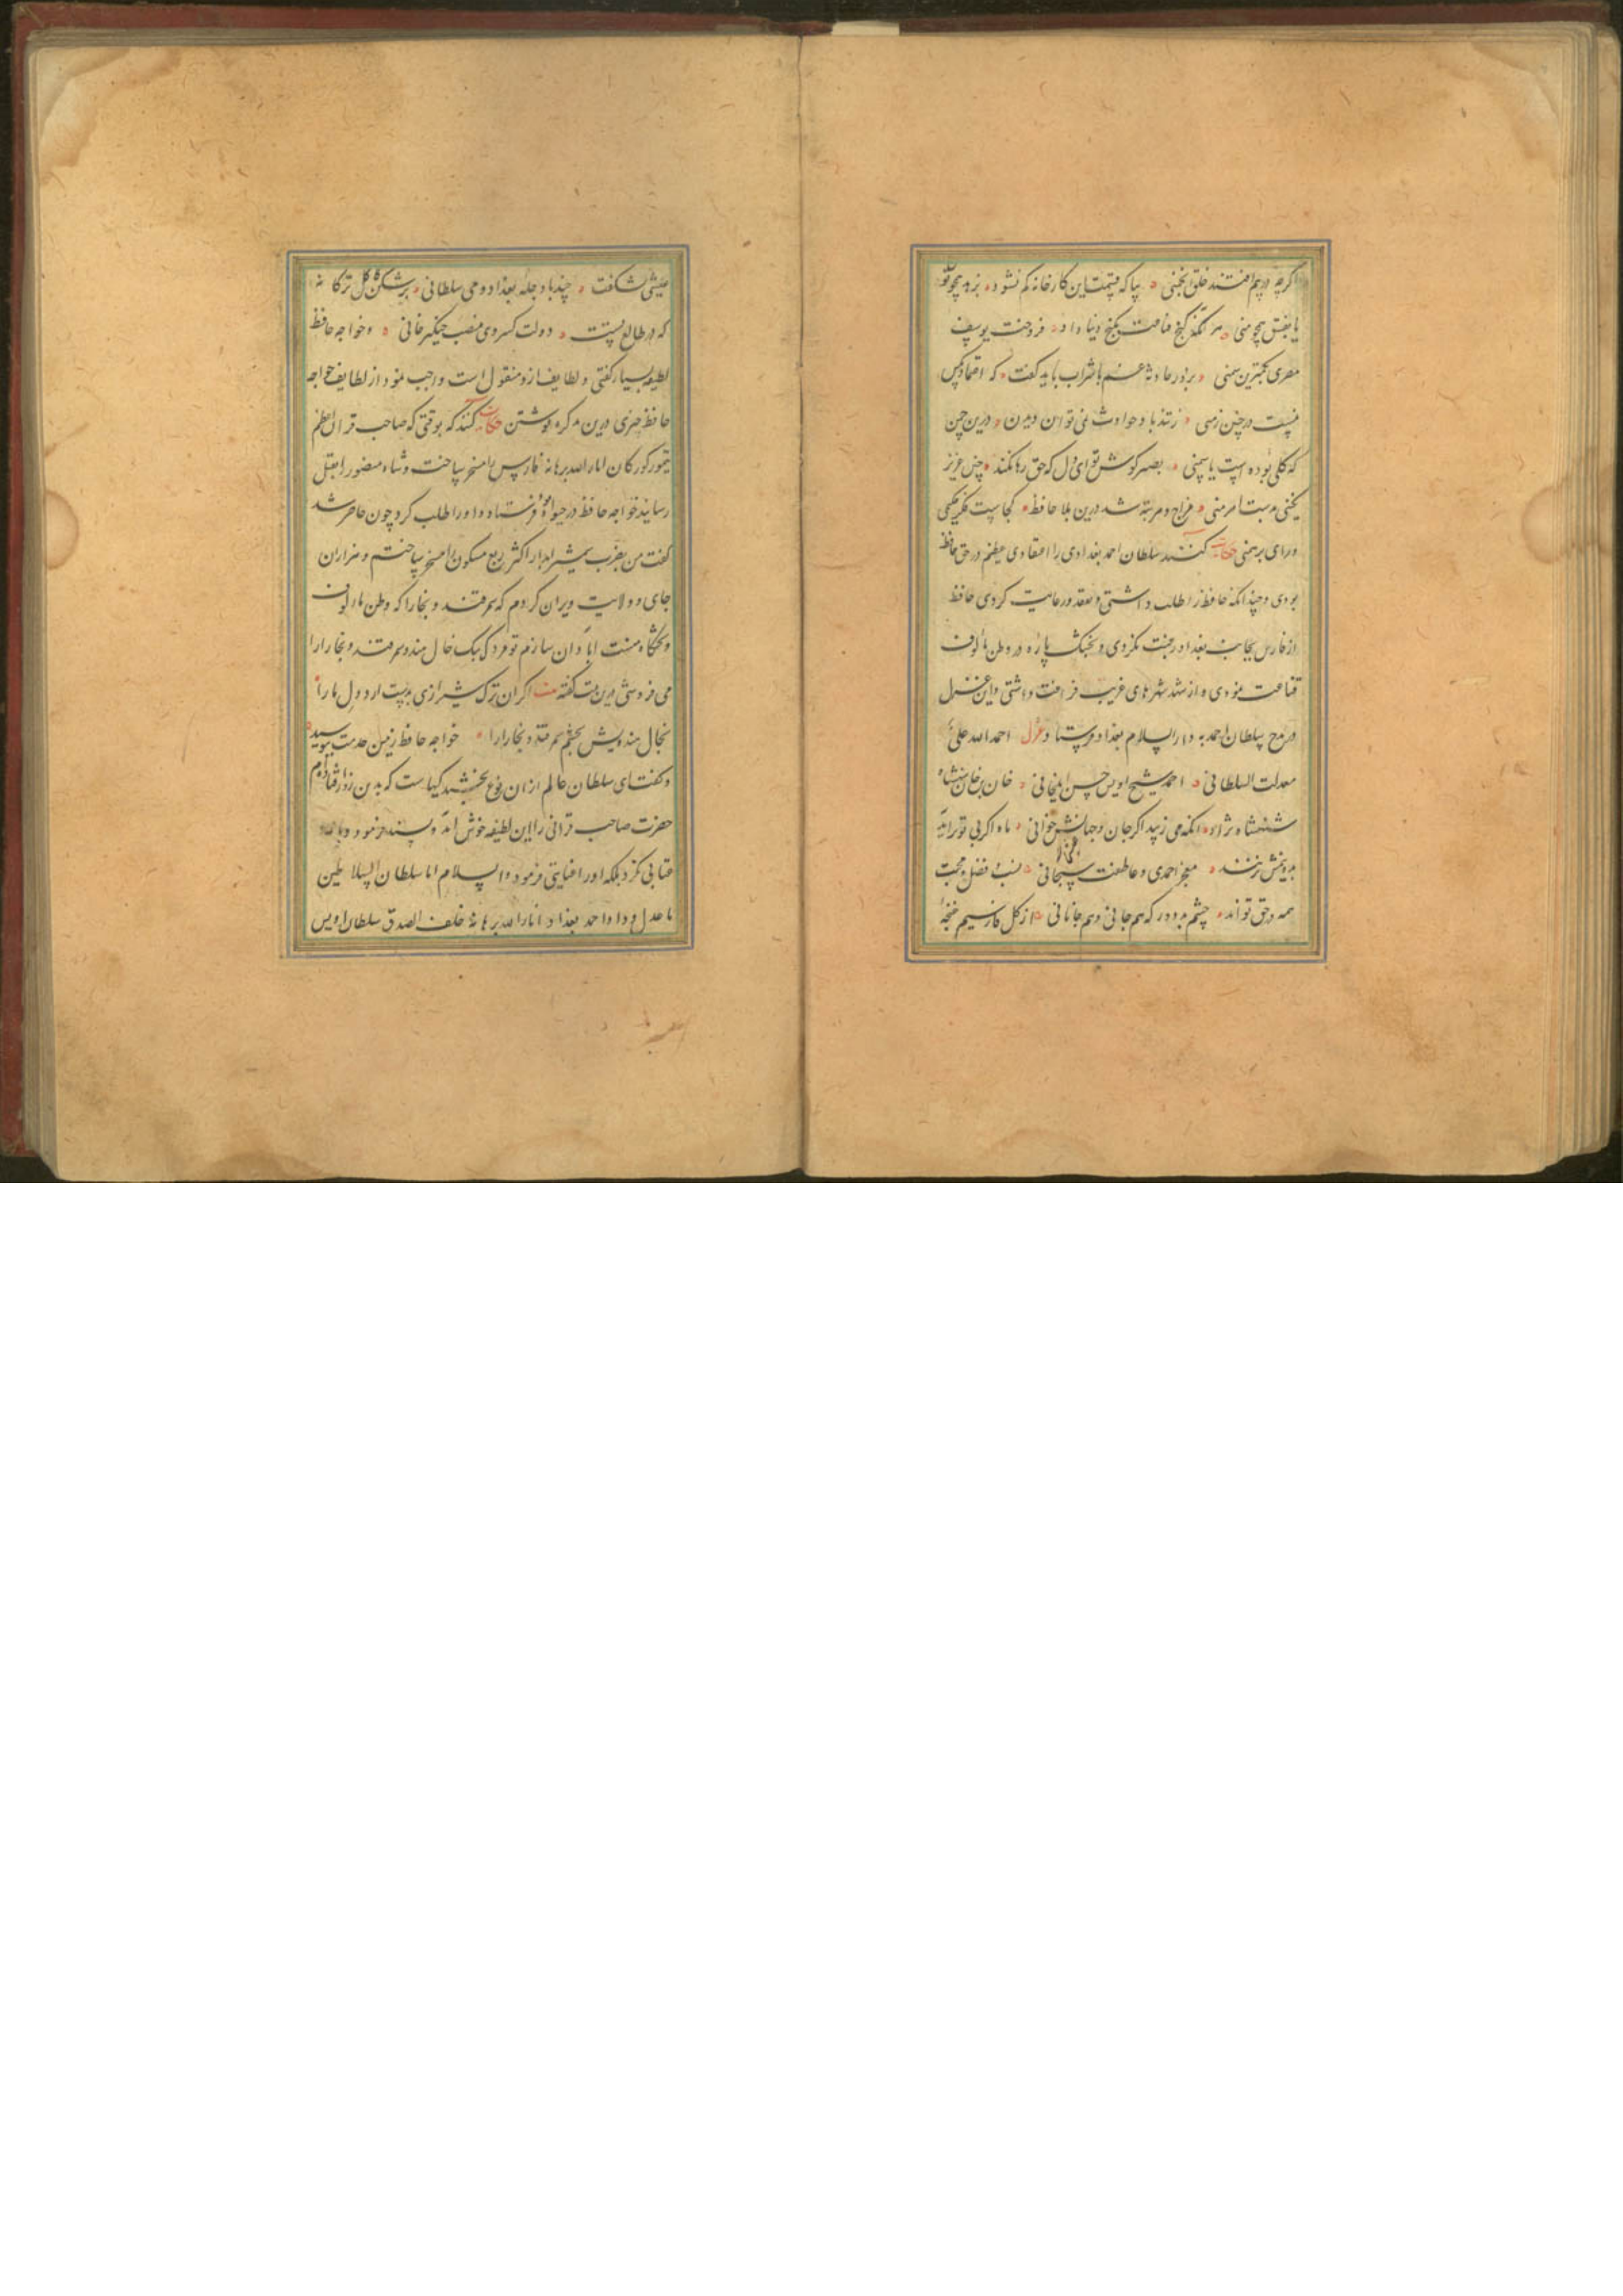 اگرچه در پیم افتند خلق انجمنی ۰ بیا که قیمت این کارخانه کم نشود ۰ بزهد همچو تویی
یا بفسق همچو منی ۰ هر آنکه کنج قناعت بگنج دنیا داد ۰ فروخت یوسف
مصری بکمترین ثمنی ۰ بروز حادثه غم با شراب باید گفت ۰ که اعتماد بکس
نیست در چنین زمنی ۰ ز تندباد حوادث نمی توان دیدن ۰ درین چمن
که گلی بوده است یا سمنی ۰ بصبر کوش تو ای دل که حق رها نکند ۰ چنین عزیز
نگینی بدست اهرمنی ۰ مزاج دهر تبه شد درین بلا حافظ ۰ کجاست فکر حکیمی
و رای برهمنی حکایت کنند سلطان احمد بغدادی را اعتقادی عظیم در حق حافظ
بودی و چندانکه حافظ را طلب داشتی و تفقد و رعایت کردی حافظ
از فارس بجانب بغداد رغبت نکردی و بخشک پاره در وطن مألوف
قناعت نمودی و از شهد شهرهای غریب فراغت داشتی و این غزل
در مدح سلطان احمد به دار السلام بغداد فرستاد غزل احمد الله علی
معدلت السلطانی ۰ احمد شیخ اویس حسن ایلخانی ۰ خان بن خان شهنشاه
شهنشاه نژاد ۰ آنکه می زیبد اگر جان و جهانش خوانی ۰ ماه اگر بی تو برآید
بدو نیمش بزنند ۰ معجز احمدی و عاطفت سبحانی ۰ نسب فضل و محبت
همه در حق تواند ۰ چشم بد دور که هم جانی و هم جانانی ۰ از گل فارسیم غنچهٔ
عیشی نشکفت ۰ حبذا دجله بغداد و می سلطانی ۰ برشکن کاکل ترکانه
که در طالع تست ۰ دولت کسروی منصب چنگیزخانی ۰ و خواجه حافظ
لطیفه بسیار گفتی و لطایف ازو منقول است واجب نمود از لطایف خواجه
حافظ چیزی درین تذکره نوشتن حکایت کنند که بوقتی که صاحب قران اعظم
تیمور کورکان انار الله برهانه فارس را مسخر ساخت و شاه منصور را بقتل
رسانید خواجه حافظ در حیوة بود فرستاد و او را طلب کرد چون حاضر شد
گفت من بضرب شمشیر آبدار اکثر ربع مسکون را مسخر ساختم و هزاران
جای و ولایت ویران کردم که سمرقند و بخارا که وطن مألوف
و تختگاه منست آبادان سازم تو مردک بیک خال هندو سمرقند و بخارا را
می فروشی درین بیت گفته بیت اگر آن ترک شیرازی بدست آرد دل ما را
بخال هندویش بخشم سمرقند و بخارا را ۰ خواجه حافظ زمین خدمت ببوسید
و گفت ای سلطان عالم از آن نوع بخشیدگیهاست که بدین روز افتاده ام
حضرت صاحب قرانی را این لطیفه خوش آمد و پسند فرمود و با او
عتابی نکرد بلکه او را عنایتی فرمود والسلام اما سلطان السلاطین
با عدل و داد احمد بغداد انار الله برهانه خلف الصدق سلطان اویس